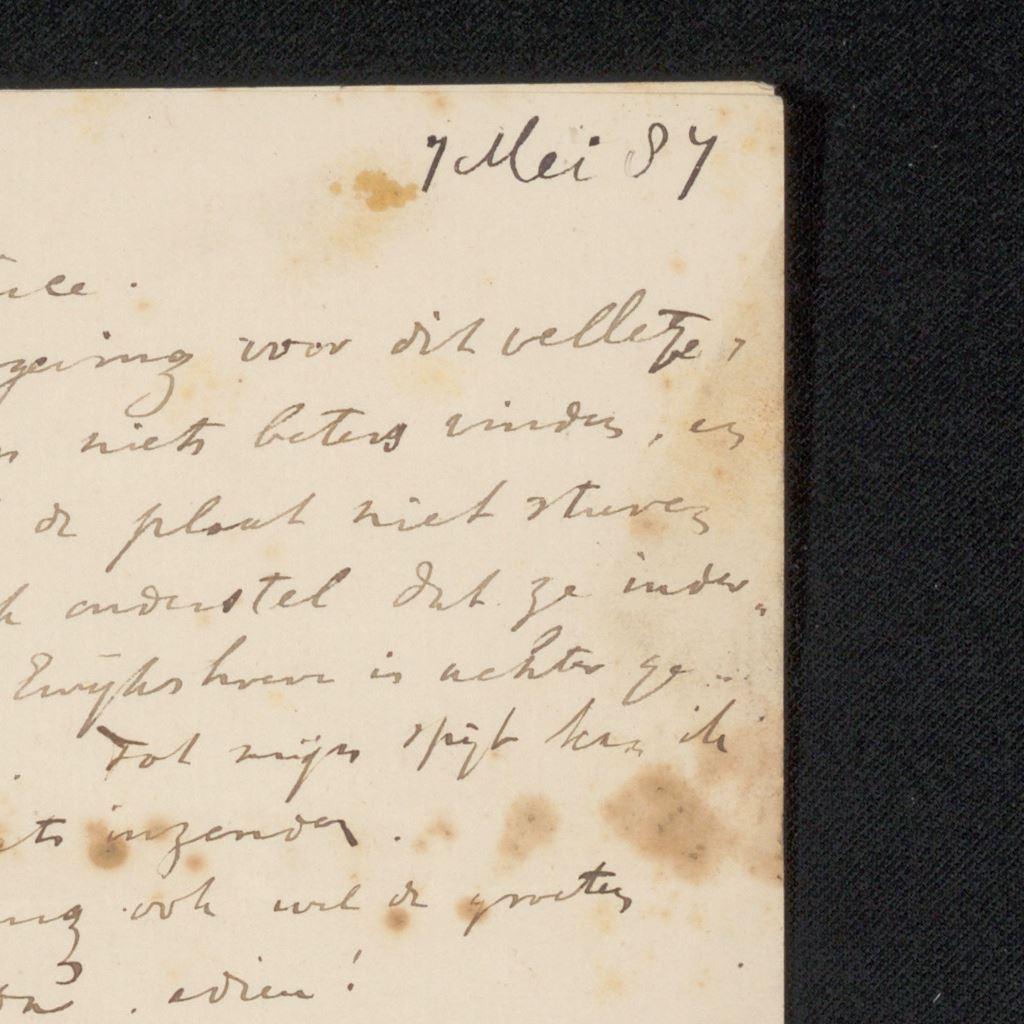 7 Mei 87
geving voor dit velletje,
niets beters vinden, en
de plaat niet sturen
onderstel dat ze inder-
Ewijkshoeve is achter ge-
Tot mijn spijt kan ik
inzenden.
ook wel de groeten
. adieu!